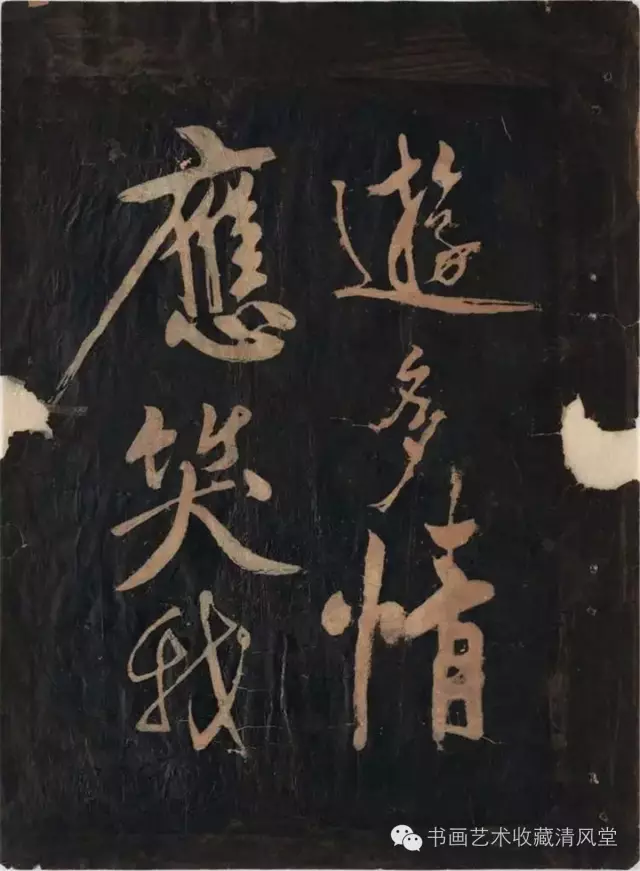 遊多情
應笑我
书画艺术收藏清风堂